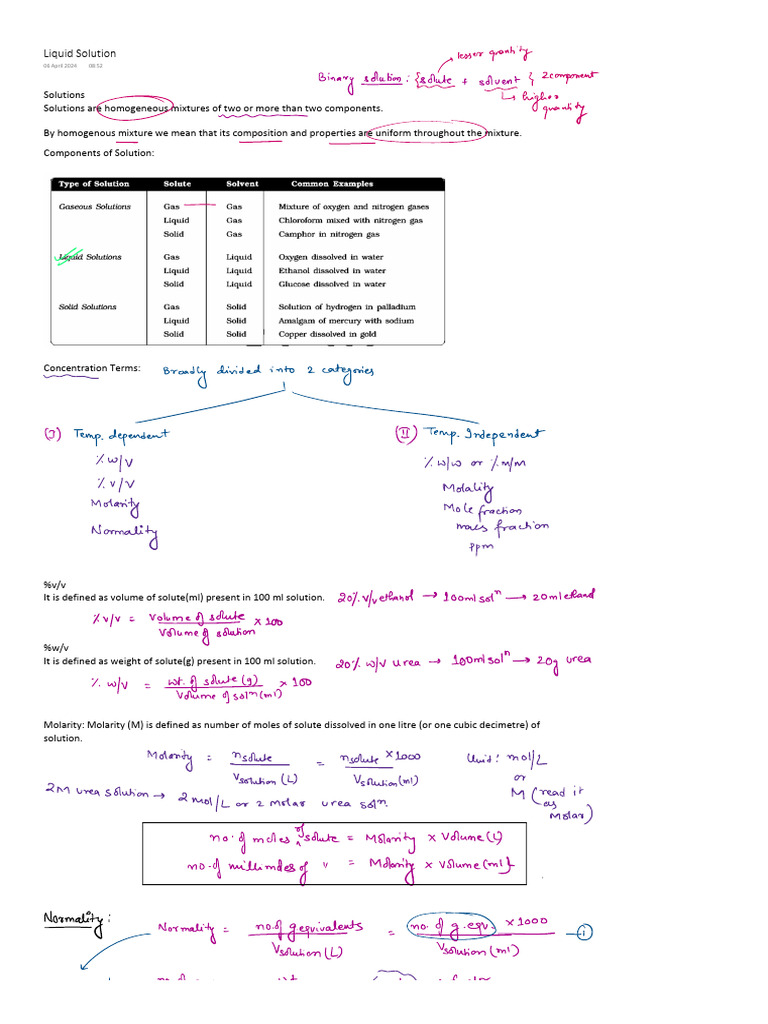 Liquid Solution
06 April 2024 08:52
lesser quantity
Binary solution : {solute + solvent } 2 component
↳ higher quantity
Solutions
Solutions are homogeneous mixtures of two or more than two components.
By homogenous mixture we mean that its composition and properties are uniform throughout the mixture.
Components of Solution:
Type of Solution Solute Solvent Common Examples
Gaseous Solutions Gas Gas Mixture of oxygen and nitrogen gases
Liquid Gas Chloroform mixed with nitrogen gas
Solid Gas Camphor in nitrogen gas
Liquid Solutions Gas Liquid Oxygen dissolved in water
Liquid Liquid Ethanol dissolved in water
Solid Liquid Glucose dissolved in water
Solid Solutions Gas Solid Solution of hydrogen in palladium
Liquid Solid Amalgam of mercury with sodium
Solid Solid Copper dissolved in gold
Concentration Terms: Broadly divided into 2 categories
(I) Temp. dependent
% w/v
% v/v
Molarity
Normality
(II) Temp. Independent
% w/w or % m/m
Molality
Mole fraction
mass fraction
ppm
%v/v
It is defined as volume of solute(ml) present in 100 ml solution. 20% v/v ethanol → 100ml solⁿ → 20ml ethanol
% v/v = Volume of solute / Volume of solution × 100
%w/v
It is defined as weight of solute(g) present in 100 ml solution. 20% w/v urea → 100ml solⁿ → 20g urea
% w/v = wt. of solute (g) / Volume of solⁿ (ml) × 100
Molarity: Molarity (M) is defined as number of moles of solute dissolved in one litre (or one cubic decimetre) of
solution.
Molarity = nsolute / Vsolution (L) = nsolute × 1000 / Vsolution (ml) Unit: mol/L or M (read it as Molar)
2M urea solution → 2 mol/L or 2 molar urea solⁿ
no. of moles of solute = Molarity × Volume (L)
no. of millimoles of " = Molarity × Volume (ml)
Normality:
Normality = no. of g equivalents / Vsolution (L) = no. of g. equv. × 1000 / Vsolution (ml) — (i)